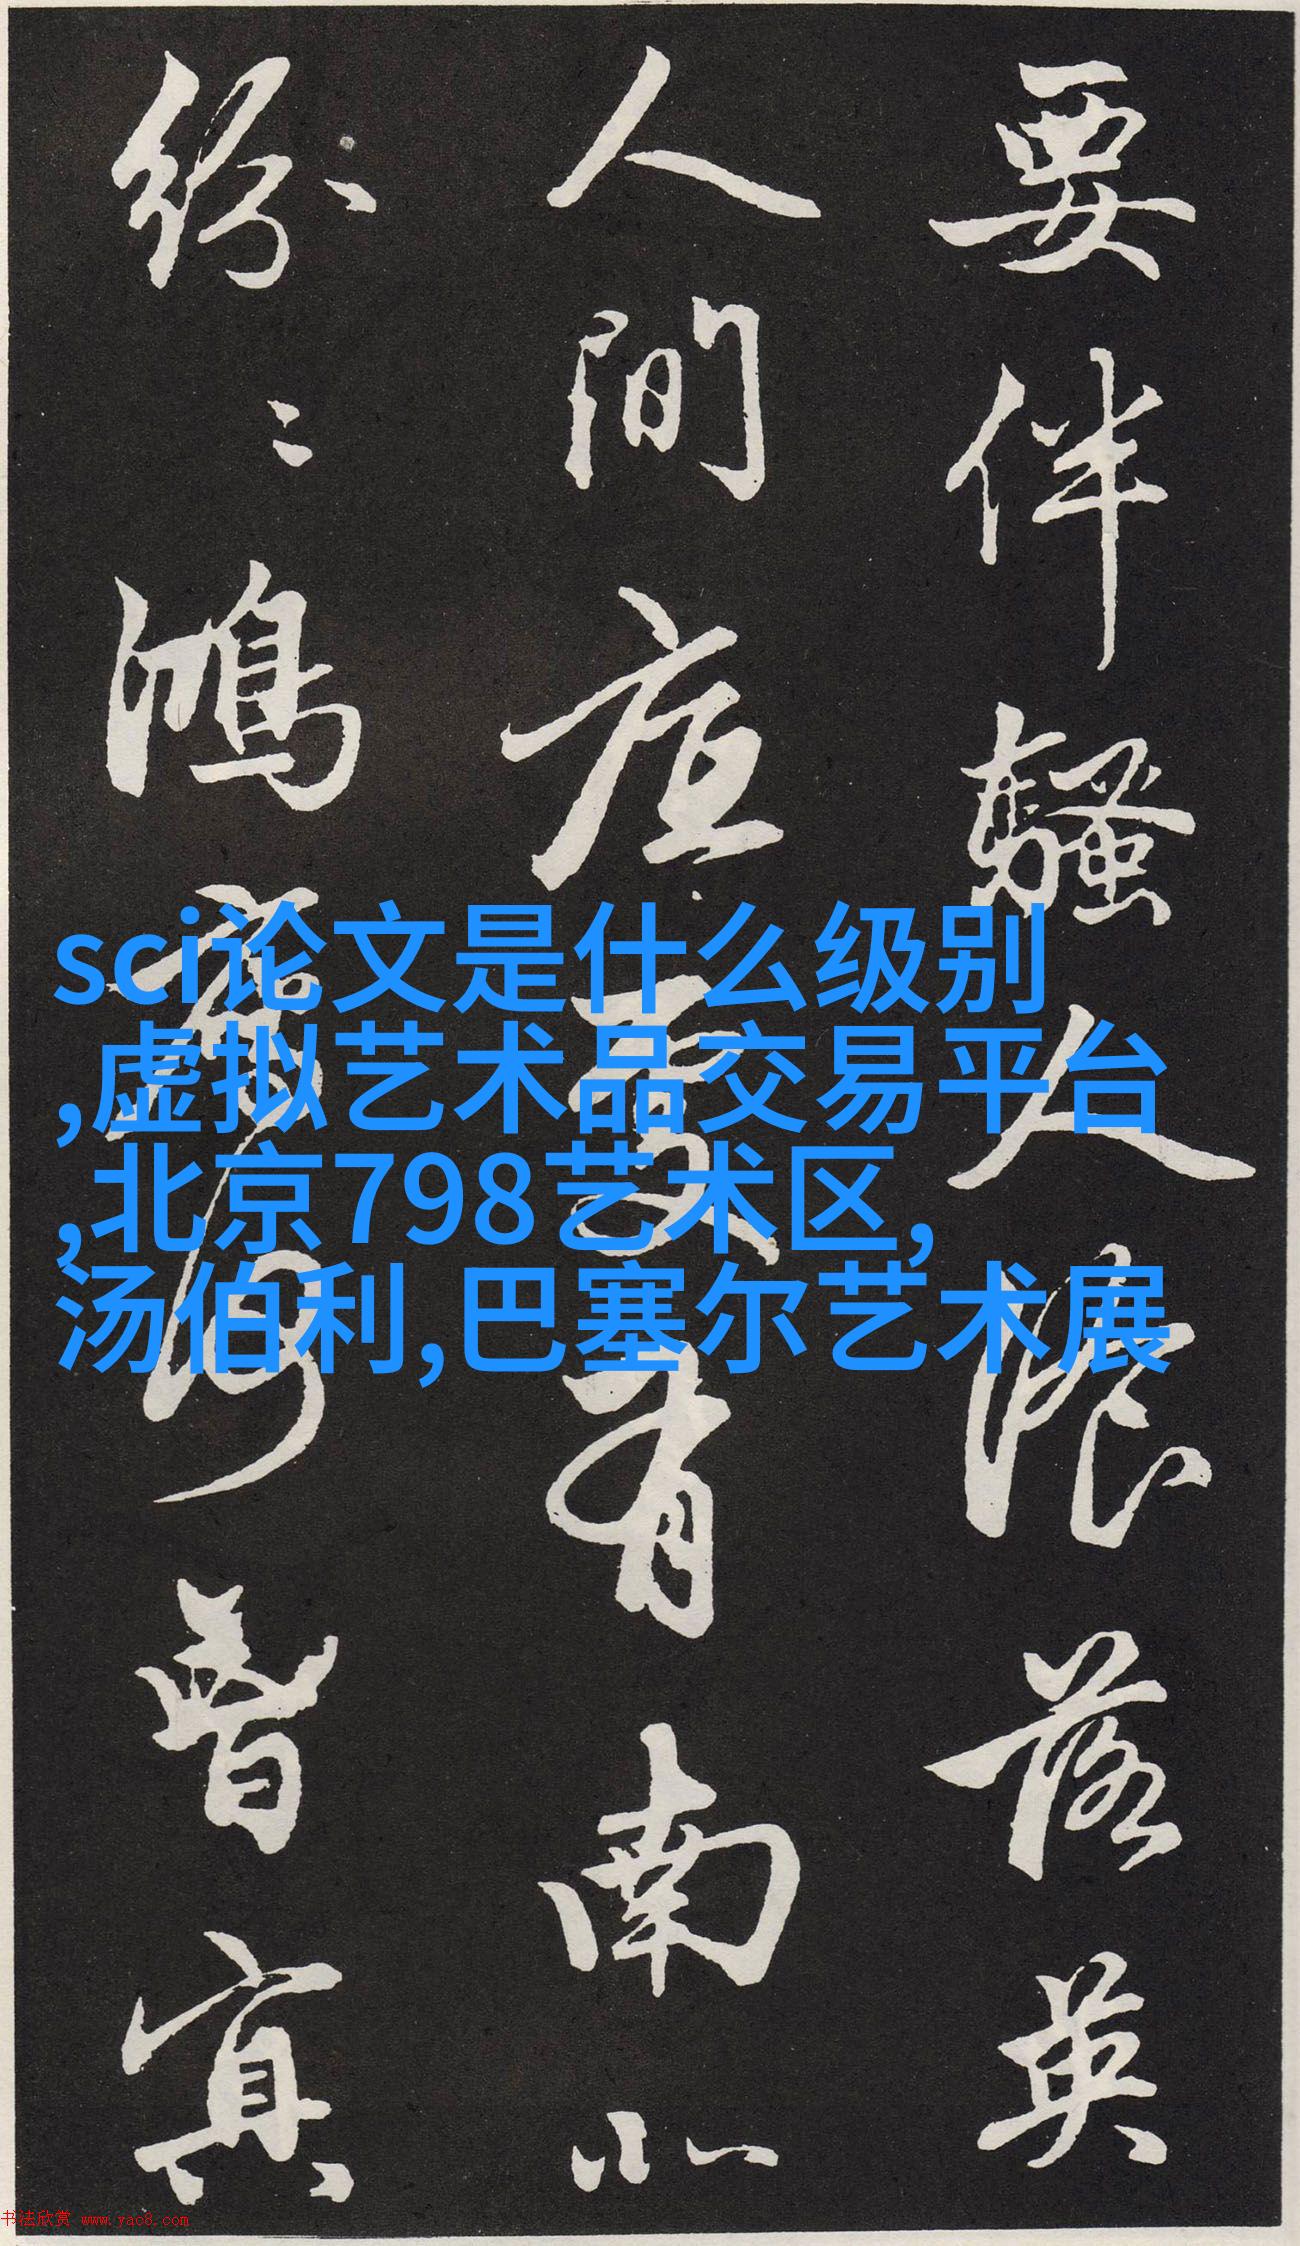 要伴騷人湌落英
人間底處有南北
紛〻鴻鴈何曾冥
sci论文是什么级别
,虚拟艺术品交易平台
,北京798艺术区,
汤伯利,巴塞尔艺术展
书法欣赏 www.yac8.com